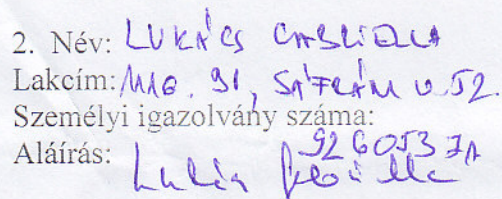 2. Név: LUKÁCS GABRIELLA
Lakcím: 1116. Bp, SÁFRÁNY U 52.
Személyi igazolvány száma:
926053 JA
Aláírás: Lukács Gabriella